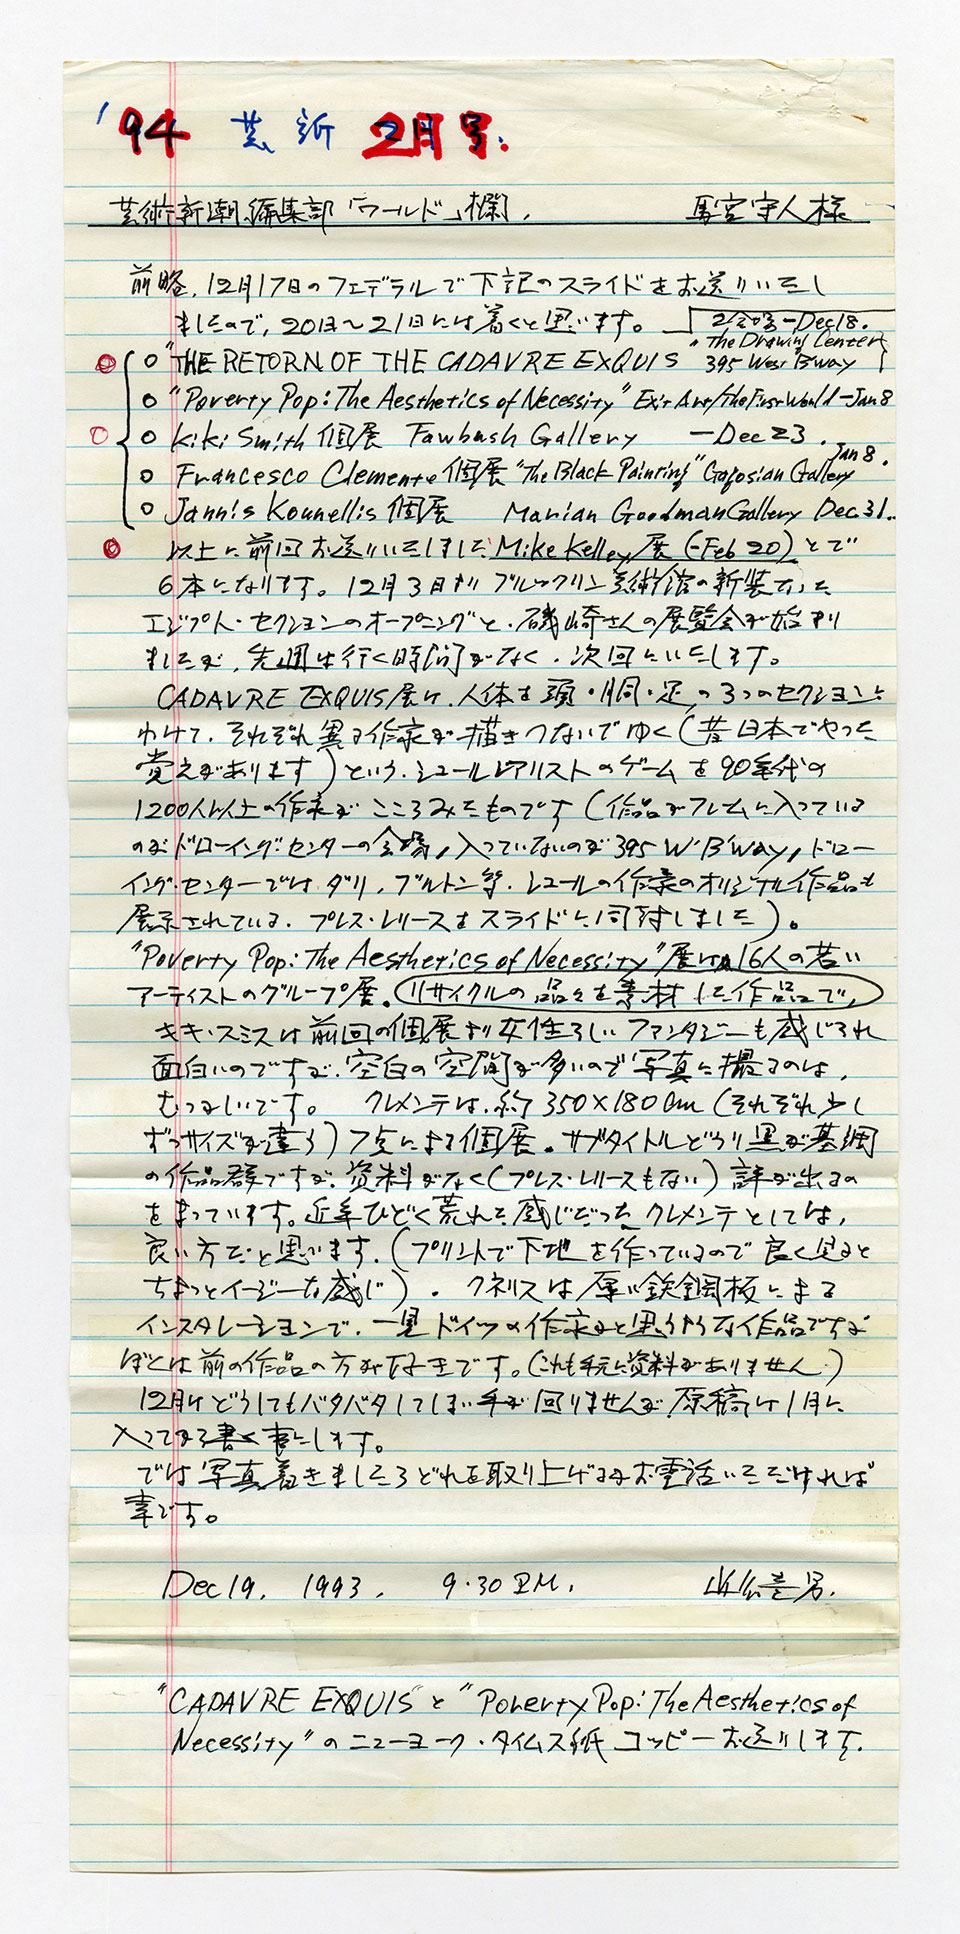 '94 芸新 2月号.
芸術新潮編集部「ワールド」欄, 馬宮守人様
前略, 12月17日のフェデラルで下記のスライドをお送りいたし
ましたので, 20日〜21日には着くと思います。 2会場 —Dec18.
"The Drawing Center
○ "THE RETORN OF THE CADAVRE EXQUIS 395 West B'way
○ "Poverty Pop: The Aesthetics of Necessity" Exit Art/The First World —Jan 8
○ Kiki Smith 個展 Fawbush Gallery —Dec 23.
Jan 8.
○ Francesco Clemente 個展 "The Black Painting" Gagosian Gallery
○ Jannis Kounellis 個展 Marian Goodman Gallery Dec.31..
以上に前回お送りいたしましたMike Kelley展 (-Feb 20) とで
6本になります。12月3日よりブルックリン美術館の新装なった
エジプト・セクションのオープニングと, 磯崎さんの展覧会が始まり
ましたが, 先週は行く時間がなく, 次回にいたします。
CADAVRE EXQUIS展は, 人体を頭・胴・足の3つのセクションに
わけて, それぞれ異る作家が描きつないでゆく (昔日本でやった
覚えがあります) という, シュールレアリストのゲームを90年代の
1200人以上の作家がこころみたものです (作品がフレームに入っている
のがドローイング・センターの会場, 入っていないのが395 W・B'WAY, ドロー
イング・センターではダリ, ブルトン等, シュールの作家のオリジナル作品も
展示されている. プレス・レリースをスライドに同封しました)。
"Poverty Pop: The Aesthetics of Necessity"展は16人の若い
アーティストのグループ展。リサイクルの品々を素材した作品で,
キキ・スミスは前回の個展より女性らしいファンタジーも感じられ
面白いのですが, 空白の空間が多いので写真に撮るのは,
むつかしいです。 クレメンテは, 約350×180cm (それぞれ少し
ずつサイズが違う) 7点による個展。サブタイトルどうり黒が基調
の作品群ですが, 資料がなく (プレス・レリースもない) 評が出るの
をまっています。近年ひどく荒れた感じだったクレメンテとしては,
良い方だと思います. (プリントで下地を作っているので良く見ると
ちょっとイージーな感じ). クネリスは厚い鉄鋼板による
インスタレーションで, 一見ドイツの作家かと思うような作品ですが
ぼくは前の作品の方が好きです。(これも手元に資料がありません.)
12月はどうしてもバタバタしてしまい手が回りませんが, 原稿は1月に
入ってから書く事にします。
では写真着きましたらどれを取り上げるかお電話いただければ
幸です。
Dec 19, 1993, 9.30 P.M.
"CADAVRE EXQUIS" と "Poverty Pop: The Aesthetics of
Necessity" のニューヨーク・タイムス紙コッピーお送りします.